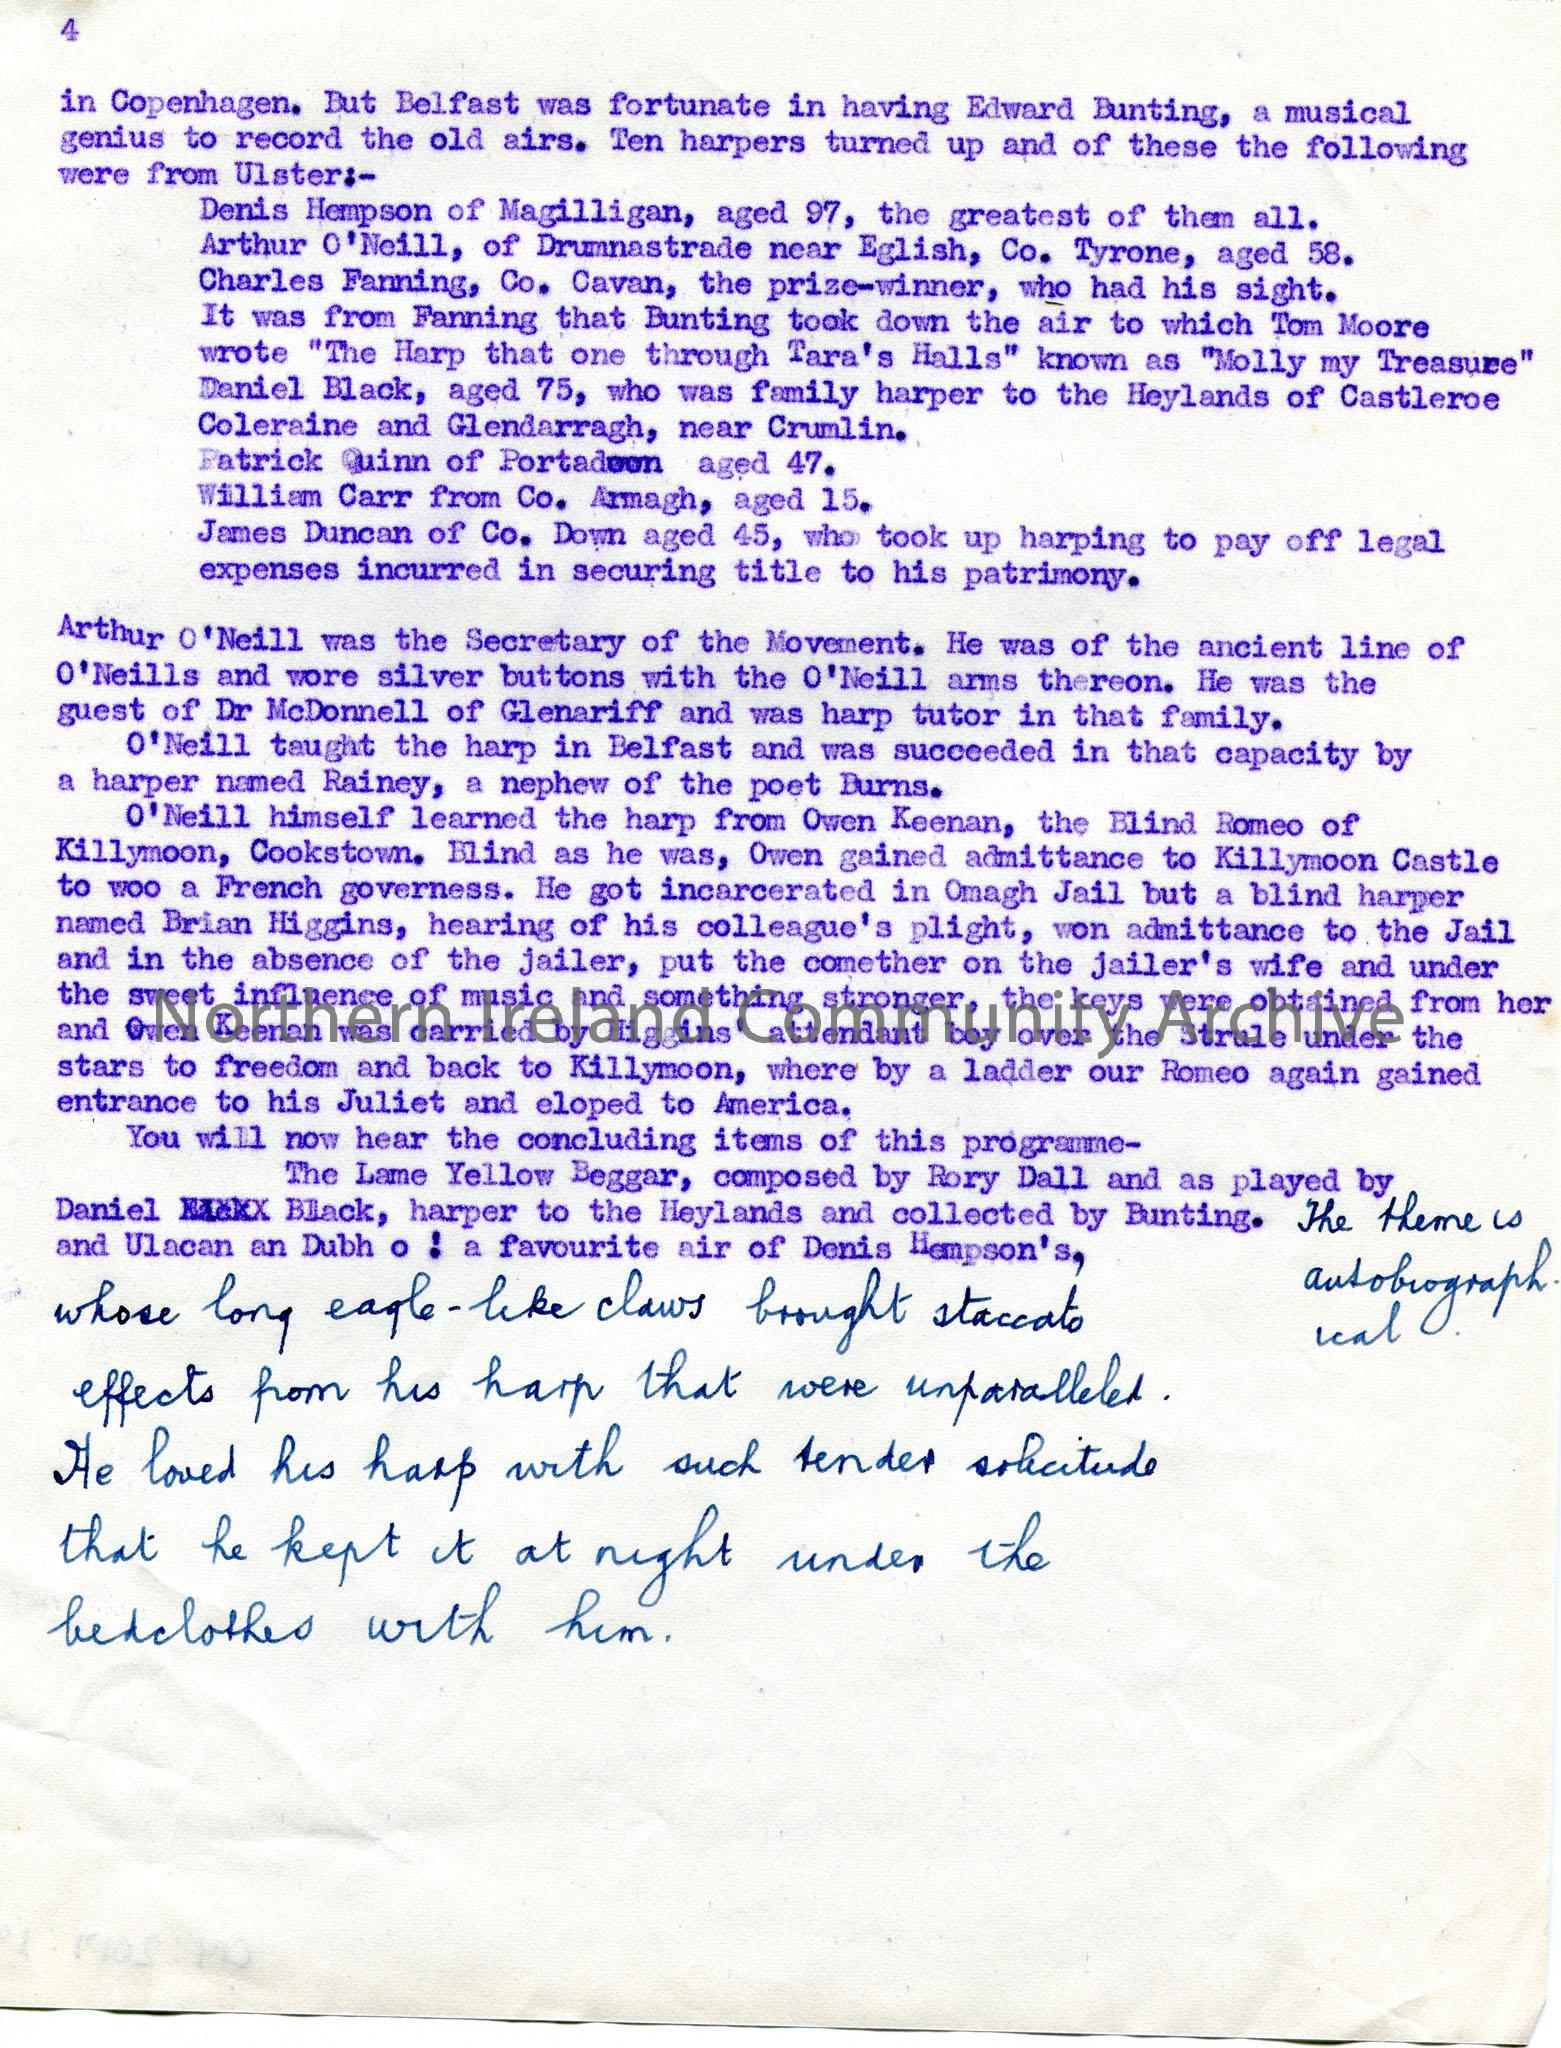 4
in Copenhagen. But Belfast was fortunate in having Edward Bunting, a musical
genius to record the old airs. Ten harpers turned up and of these the following
were from Ulster:-
Denis Hempson of Magilligan, aged 97, the greatest of them all.
Arthur O'Neill, of Drumnastrade near Eglish, Co. Tyrone, aged 58.
Charles Fanning, Co. Cavan, the prize-winner, who had his sight.
It was from Fanning that Bunting took down the air to which Tom Moore
wrote "The Harp that one through Tara's Halls" known as "Molly my Treasure"
Daniel Black, aged 75, who was family harper to the Heylands of Castleroe
Coleraine and Glendarragh, near Crumlin.
Patrick Quinn of Portadown aged 47.
William Carr from Co. Armagh, aged 15.
James Duncan of Co. Down aged 45, who took up harping to pay off legal
expenses incurred in securing title to his patrimony.
Arthur O'Neill was the Secretary of the Movement. He was of the ancient line of
O'Neills and wore silver buttons with the O'Neill arms thereon. He was the
guest of Dr McDonnell of Glenariff and was harp tutor in that family.
O'Neill taught the harp in Belfast and was succeeded in that capacity by
a harper named Rainey, a nephew of the poet Burns.
O'Neill himself learned the harp from Owen Keenan, the Blind Romeo of
Killymoon, Cookstown. Blind as he was, Owen gained admittance to Killymoon Castle
to woo a French governess. He got incarcerated in Omagh Jail but a blind harper
named Brian Higgins, hearing of his colleague's plight, won admittance to the Jail
and in the absence of the jailer, put the comether on the jailer's wife and under
the sweet influence of music and something stronger, the keys were obtained from her
Northern Ireland Community Archive
and Owen Keenan was carried by Higgins' attendant boy over the Strule under the
stars to freedom and back to Killymoon, where by a ladder our Romeo again gained
entrance to his Juliet and eloped to America.
You will now hear the concluding items of this programme-
The Lame Yellow Beggar, composed by Rory Dall and as played by
Daniel Black, harper to the Heylands and collected by Bunting. The theme is
autobiograph-
ical
and Ulacan an Dubh o ! a favourite air of Denis Hempson's,
whose long eagle-like claws brought staccato
effects from his harp that were unparalleled.
He loved his harp with such tender solicitude
that he kept it at night under the
bedclothes with him.